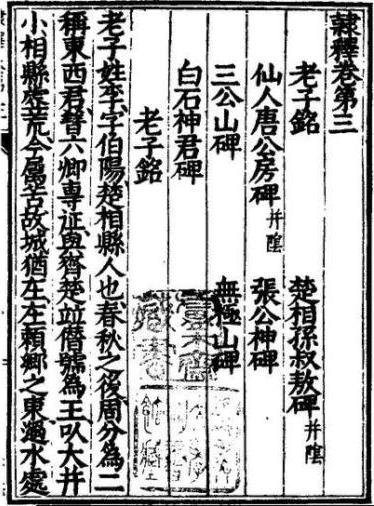 隷釋卷第三
老子銘 楚相孫叔敖碑并陰
仙人唐公房碑并陰 張公神碑
三公山碑 無極山碑
白石神君碑
老子銘
老子姓李字伯陽楚相縣人也春秋之後周分為二
稱東西君晉六卿專征與齊楚並僭號為王以大并
小相縣虛荒今屬苦故城猶在在賴鄉之東渦水處